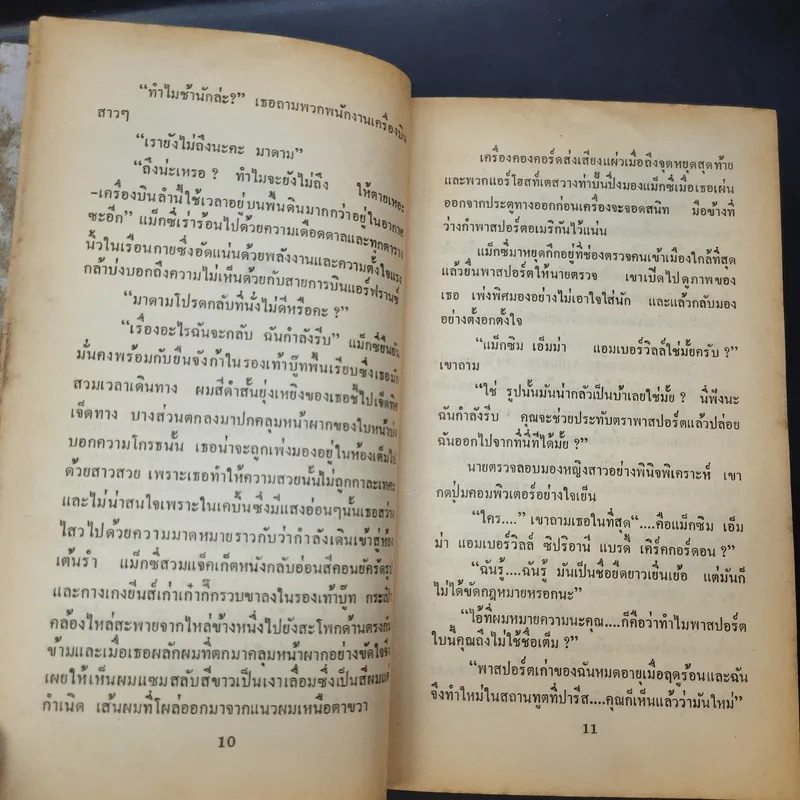 “ทำไมช้านักล่ะ?” เธอถามพวกพนักงานเครื่องบิน
สาวๆ
“เรายังไม่ถึงนะคะ มาดาม”
“ถึงน่ะเหรอ ? ทำไมจะยังไม่ถึง ให้ตายเหอะ
-เครื่องบินลำนี้ใช้เวลาอยู่บนพื้นดินมากกว่าอยู่ในอากาศ
ซะอีก” แม็กซี่เร่าร้อนไปด้วยความเดือดดาลและทุกตาราง
นิ้วในเรือนกายซึ่งอัดแน่นด้วยพลังงานและความตั้งใจแรง
กล้าบ่งบอกถึงความไม่เห็นด้วยกับสายการบินแอร์ฟรานซ์
“มาดามโปรดกลับที่นั่งไม่ดีหรือคะ ?”
“เรื่องอะไรฉันจะกลับ ฉันกำลังรีบ” แม็กซี่ยืนยัน
มั่นคงพร้อมกับยืนจังก้าในรองเท้าบู๊ทพื้นเรียบซึ่งเธอมัก
สวมเวลาเดินทาง ผมสีดำสั้นยุ่งเหยิงของเธอชี้ไปเจ็ดทิศ
เจ็ดทาง บางส่วนตกลงมาปกคลุมหน้าผากของใบหน้าบ่ง
บอกความโกรธนั้น เธอน่าจะถูกเพ่งมองอยู่ในห้องเต็มไป
ด้วยสาวสวย เพราะเธอทำให้ความสวยนั้นไม่ถูกกาละเทศะ
และไม่น่าสนใจเพราะในเคบินซึ่งมีแสงอ่อนๆนั้นเธอสว่าง
ไสวไปด้วยความมาดหมายราวกับว่ากำลังเดินเข้าสู่ห้อง
เต้นรำ แม็กซี่สวมแจ็คเก็ตหนังกลับอ่อนสีคอนยัครัดรูป
และกางเกงยีนส์เก่าเก๋ากี๊กรวบขาลงในรองเท้าบู๊ท กระเป๋า
คล้องไหล่สะพายจากไหล่ข้างหนึ่งไปยังสะโพกด้านตรงกัน
ข้ามและเมื่อเธอผลักผมที่ตกมาคลุมหน้าผากอย่างขัดใจจึง
เผยให้เห็นผมแซมสลับสีขาวเป็นเงาเลื่อมซึ่งเป็นสีผมแต่
กำเนิด เส้นผมที่โผล่ออกมาจากแนวผมเหนือตาขวา
10
เครื่องคองคอร์ดส่งเสียงแผ่วเมื่อถึงจุดหยุดสุดท้าย
และพวกแอร์โฮสท์เตสวางท่าปั้นปึ่งมองแม็กซี่เมื่อเธอเผ่น
ออกจากประตูทางออกก่อนเครื่องจะจอดสนิท มือข้างที่
ว่างกำพาสปอร์ตอเมริกันไว้แน่น
แม็กซี่มาหยุดกึกอยู่ที่ช่องตรวจคนเข้าเมืองใกล้ที่สุด
แล้วยื่นพาสปอร์ตให้นายตรวจ เขาเปิดไปดูภาพของ
เธอ เพ่งพิศมองอย่างไม่เอาใจใส่นัก และแล้วกลับมอง
อย่างตั้งอกตั้งใจ
“แม็กซิม เอ็มม่า แอมเบอร์วิลล์ใช่มั้ยครับ ?”
เขาถาม
“ใช่ รูปนั้นมันน่ากลัวเป็นบ้าเลยใช่มั้ย ? นี่ฟังนะ
ฉันกำลังรีบ คุณจะช่วยประทับตราพาสปอร์ตแล้วปล่อย
ฉันออกไปจากที่นี่ทีได้มั้ย ?”
นายตรวจลอบมองหญิงสาวอย่างพินิจพิเคราะห์ เขา
กดปุ่มคอมพิวเตอร์อย่างใจเย็น
“ใคร....” เขาถามเธอในที่สุด“....คือแม็กซิม เอ็ม
ม่า แอมเบอร์วิลล์ ซิปริอานี แบรดี้ เคิร์คกอร์ดอน ?”
“ฉันรู้....ฉันรู้ มันเป็นชื่อยืดยาวเยิ่นเย้อ แต่มันก็
ไม่ได้ขัดกฎหมายหรอกนะ”
“ไอ้ที่ผมหมายความนะคุณ....ก็คือว่าทำไมพาสปอร์ต
ใบนี้คุณถึงไม่ใช้ชื่อเต็ม ?”
“พาสปอร์ตเก่าของฉันหมดอายุเมื่อฤดูร้อนและฉัน
จึงทำใหม่ในสถานทูตที่ปารีส....คุณก็เห็นแล้วว่ามันใหม่”
11